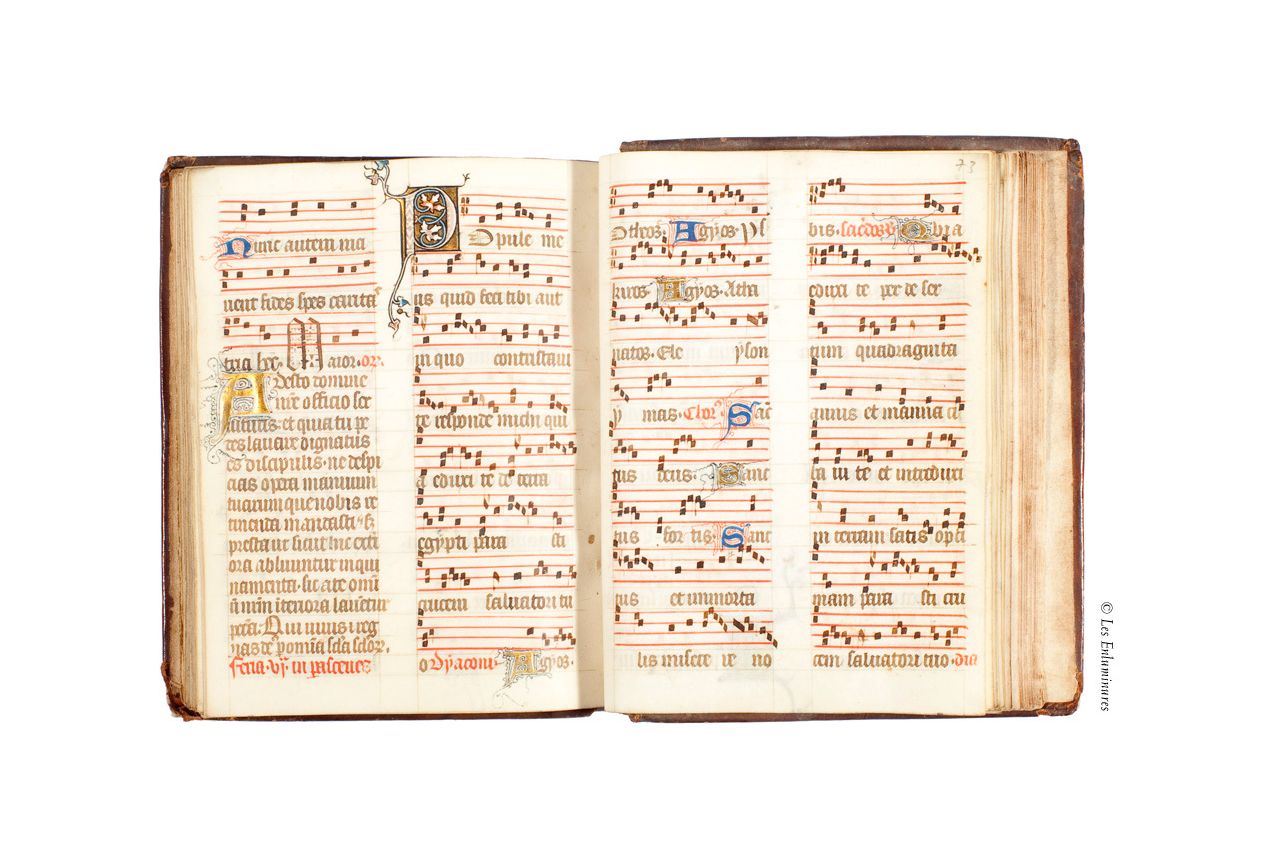 Nunc autem ma
nent fides spes carita
tria hec. Maior. or.
Adesto domine
nr̄e officio ser
uitutis. et quia tu pe
des lauare dignatus
es discipulis. ne despi
cias opera manuum
tuarum que nobis re
tinenda mandasti.
presta ut sicut hic exti
ora abluuntur inqui
namenta. sic a te omī
ū nr̄m īteriora lauētur
pctā. Qui uiuis ⁊ reg
nas
feria. vj. in parasceues
Popule me
us quid feci tibi aut
in quo contristaui
te responde michi qui
a eduxi te de terra
egypti para sti
crucem saluatori tu
o Dyaconi. Agyos.
Otheos. Agyos. ys
kiros. Agyos. Atha
natos. Ele yson
y mas. Chor. Sac
tus deus. Sanc
tus for tis. Sanc
tus et immorta
lis misere re no
73
bis. sacerdos Quia
eduxi te per de ser
tum quadraginta
annis et manna ci
ba ui te et introduxi
in terram satis opti
mam para sti cru
cem saluatori tuo. dia
© Les Enluminures